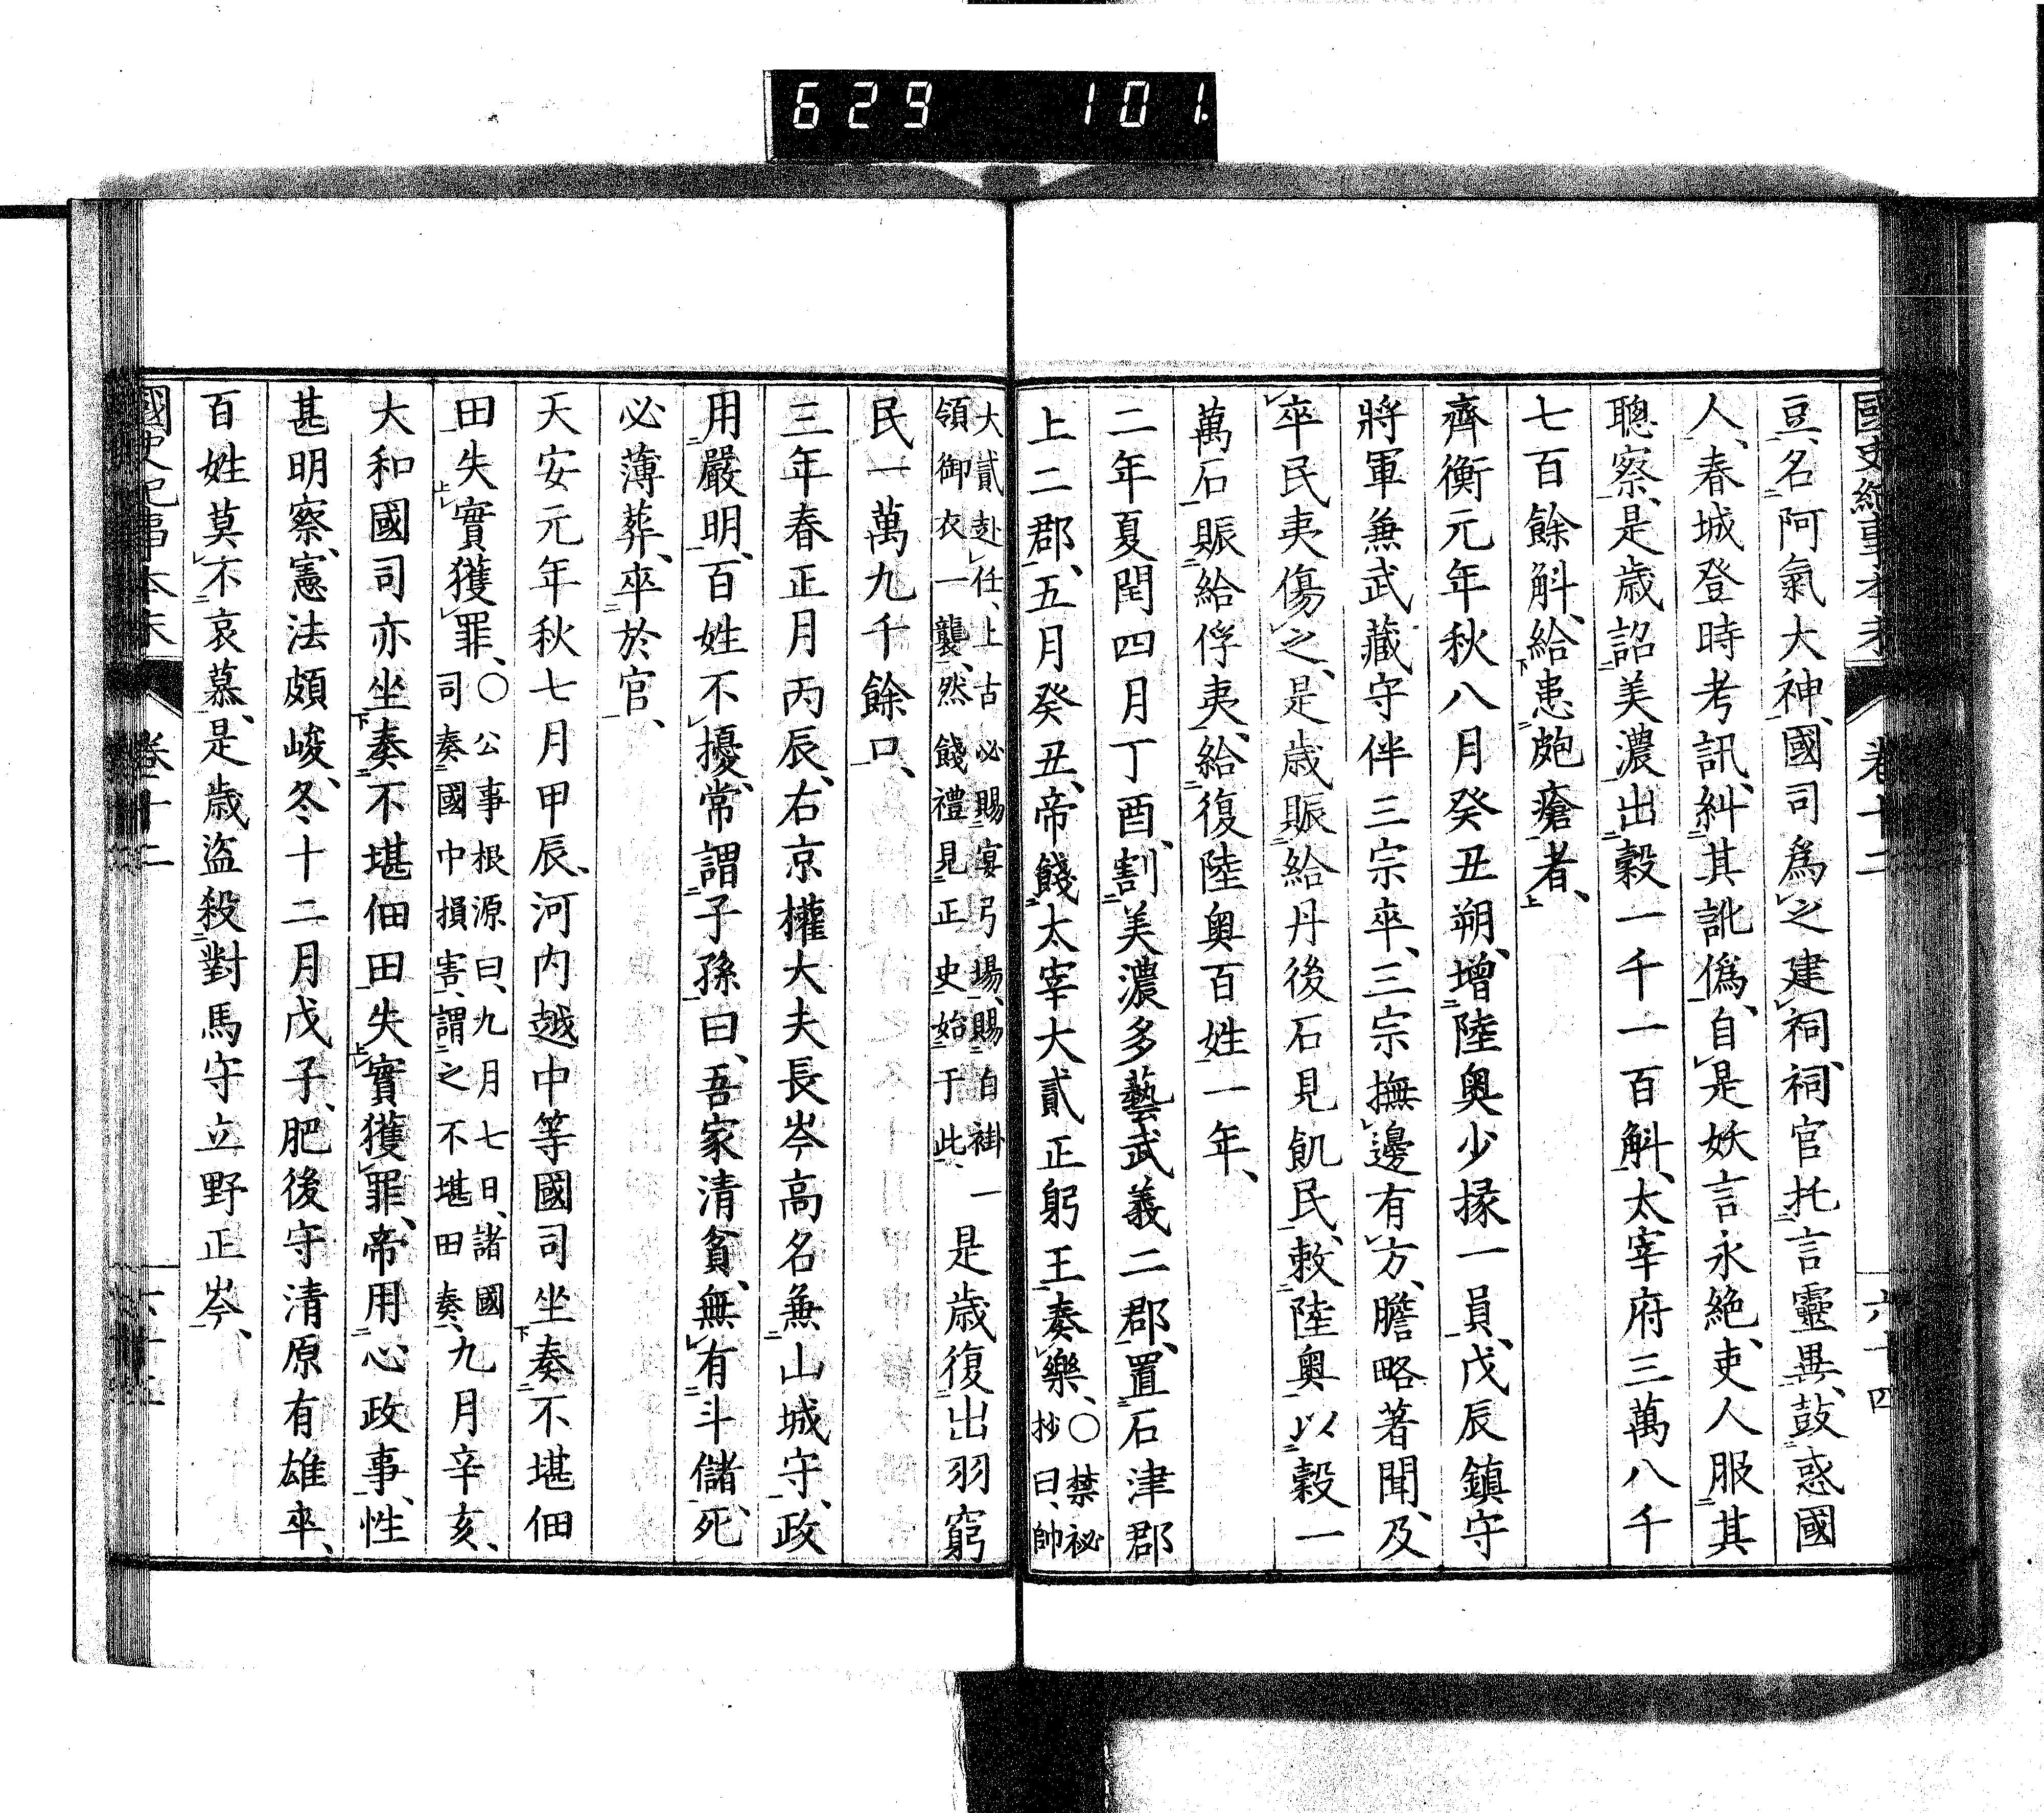 629 101.
國史紀事本末 卷十二 六十四
豆、名阿氣大神、國司爲之建祠、祠官托言靈異、鼓惑國
人、春城登時考訊、糾其訛僞、自是妖言永絶、吏人服其
聰察、是歲詔美濃出穀一千一百斛、太宰府三萬八千
七百餘斛、給患皰瘡者、
齊衡元年秋八月癸丑朔、增陸奧少掾一員、戊辰鎮守
將軍兼武藏守伴三宗卒、三宗撫邊有方、膽略著聞、及
卒民夷傷之、是歲賑給丹後石見飢民、敕陸奧以穀一
萬石賑給俘夷、給復陸奧百姓一年、
二年夏閏四月丁酉、割美濃多藝武義二郡、置石津郡
上二郡、五月癸丑、帝餞太宰大貳正躬王奏樂、〇禁祕
抄曰、帥
大貳赴任、上古必賜宴弓場、賜白褂
領御衣一襲、然餞禮見正史始于此、一是歲復出羽窮
民一萬九千餘口、
三年春正月丙辰、右京權大夫長岑高名兼山城守、政
用嚴明、百姓不擾、常謂子孫曰、吾家清貧、無有斗儲、死
必薄葬、卒於官、
天安元年秋七月甲辰、河内越中等國司坐奏不堪佃
田失實獲罪、〇公事根源曰、九月七日、諸國
司奏國中損害、謂之不堪田奏、九月辛亥、
大和國司亦坐奏不堪佃田失實獲罪、帝用心政事、性
甚明察、憲法頗峻、冬十二月戊子、肥後守清原有雄卒、
百姓莫不哀慕、是歲盜殺對馬守立野正岑、
國史紀事本末 卷十二 六十五